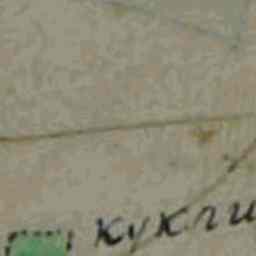 куклы